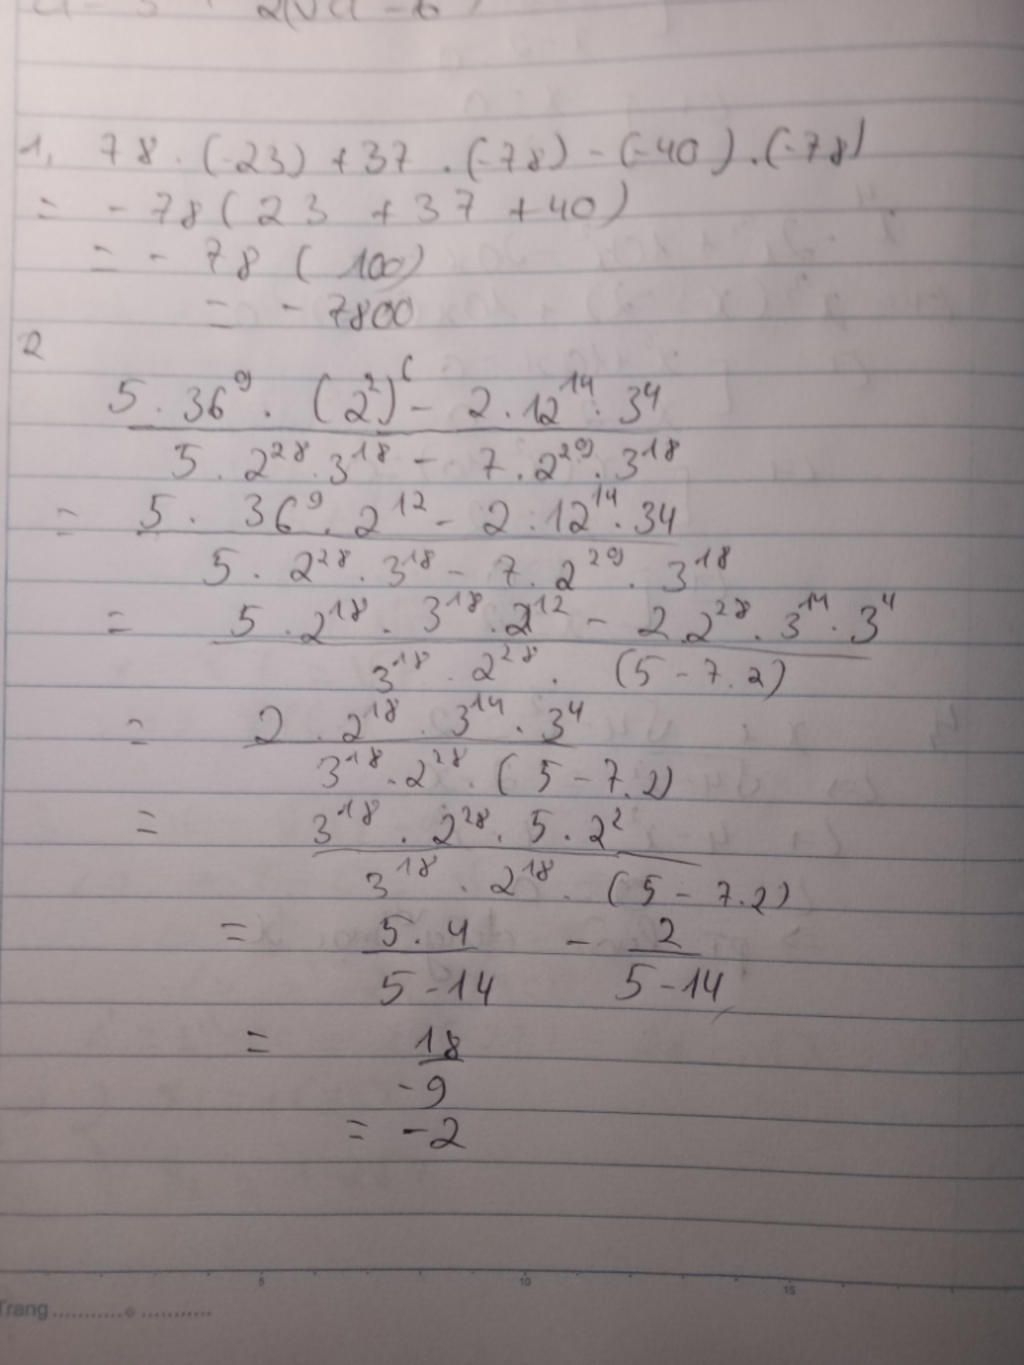 1, 78 . (-23) + 37 . (-78) - (-40) . (-78)
= - 78 ( 23 + 37 + 40 )
= - 78 ( 100)
= - 7800
2
5 . 36⁹ . (2²)⁶ - 2 . 12¹⁴ . 3⁴
5 . 2²⁸ . 3¹⁸ - 7 . 2²⁹ . 3¹⁸
= 5 . 36⁹ . 2¹² - 2 . 12¹⁴ . 34
5 . 2²⁸ . 3¹⁸ - 7 . 2²⁹ . 3¹⁸
= 5 . 2¹⁸ . 3¹⁸ . 2¹² - 2 . 2²⁸ . 3¹⁴ . 3⁴
3¹⁸ . 2²⁸ . (5 - 7 . 2)
= 2 . 2¹⁸ . 3¹⁴ . 3⁴
3¹⁸ . 2²⁸ . ( 5 - 7 . 2)
= 3¹⁸ . 2²⁸ . 5 . 2²
3¹⁸ . 2¹⁸ . (5 - 7 . 2)
= 5 . 4 - 2
5 - 14 5 - 14
= 18
- 9
= - 2
5 10 15
Trang